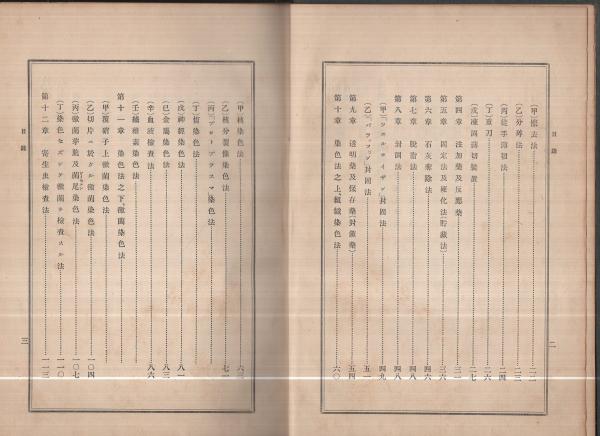 目錄
二
(甲)擦去法 二二
(乙)分離法 二三
(丙)徒手薄切法 二四
(丁)重刀 二六
(戊)凍固薄切裝置 二七
第四章 添加藥及反應藥 三一
第五章 固定法及硬化法(貯藏法) 三六
第六章 石灰奪除法 四六
第七章 脫脂法 四八
第八章 封固法 四八
(甲)「ツエルロイヂン」封固法 四九
(乙)「パラフィン」封固法 五一
第九章 透明藥及保存藥(封鎖藥) 五四
第十章 染色法之上、組織染色法 六〇
(甲)核染色法 六三
(乙)核分裂像染色法 七一
(丙)「プロトプラスマ」染色法
(丁)脂染色法
(戊)神經染色法 八一
(己)金屬染色法 八三
(辛)血液檢査法 八六
(壬)纖維素染色法
第十一章 染色法之下、黴菌染色法
(甲)覆硝子上黴菌染色法
(乙)切片ニ於ケル黴菌染色法 一〇四
(丙)黴菌芽胞及菌尾染色法 一〇七
(丁)染色セズシテ黴菌ヲ檢査スル法 一一〇
第十二章 寄生虫檢査法 一一三
目錄
三